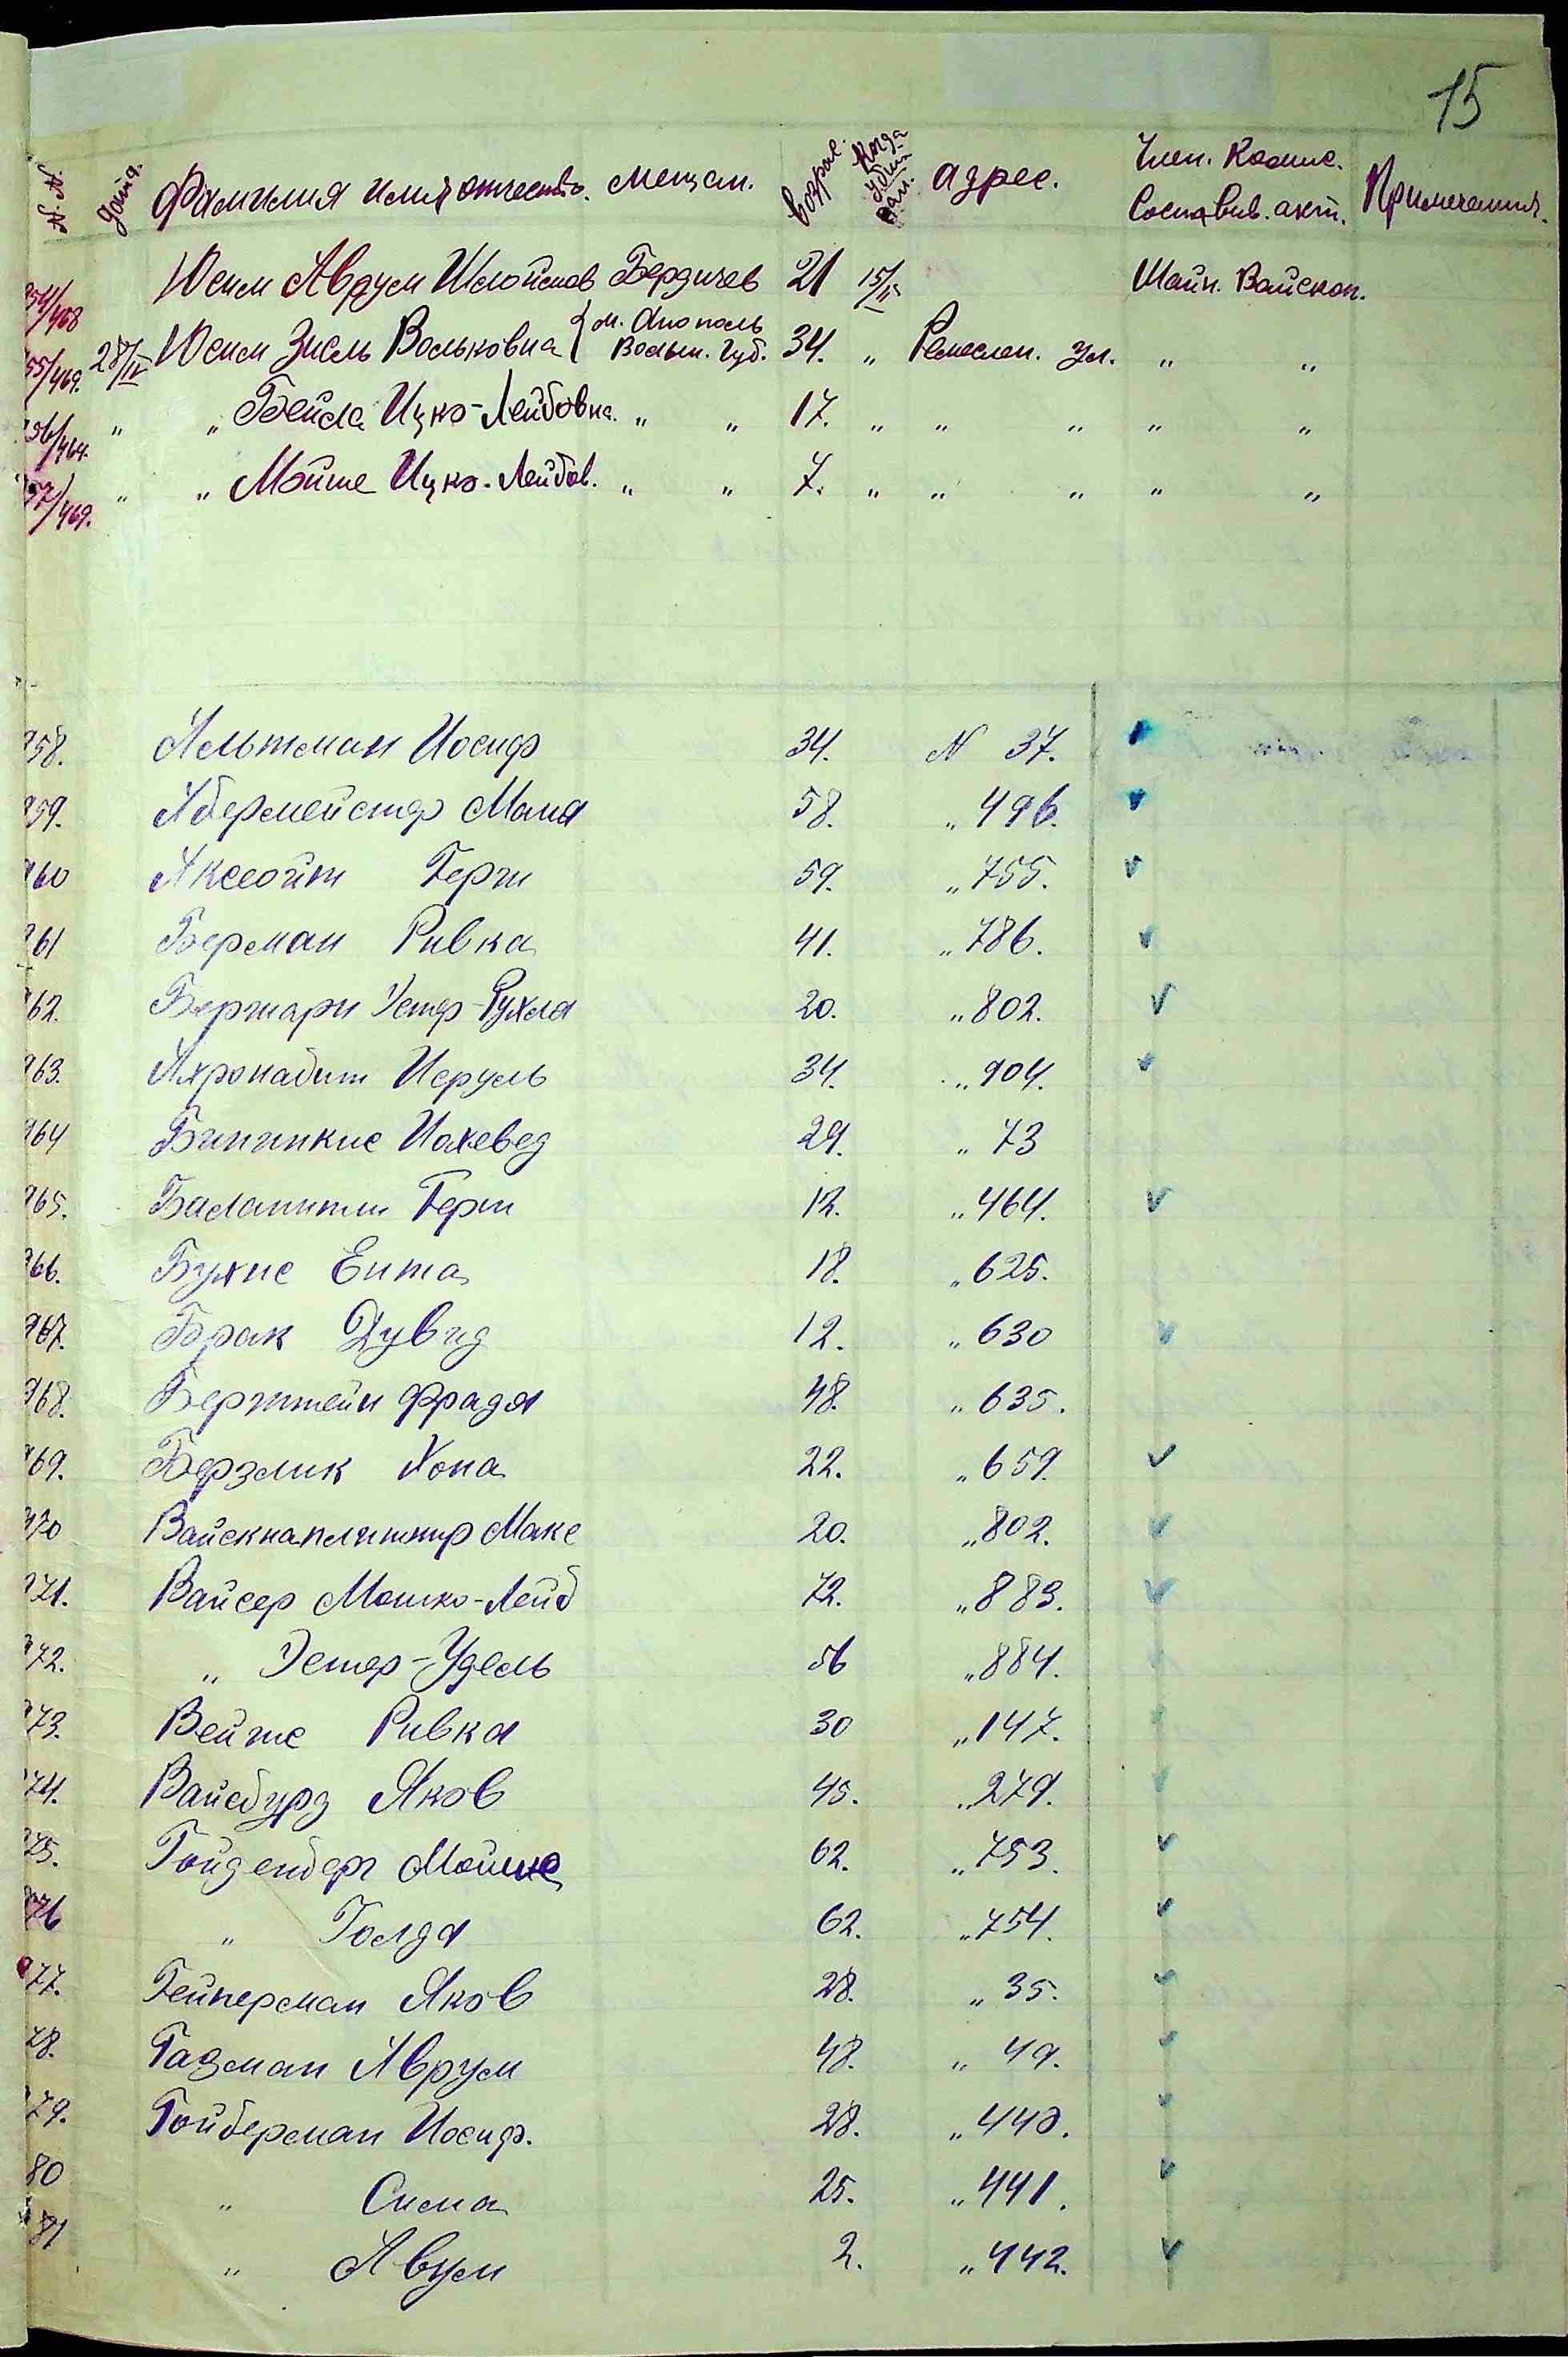 15
№№ Фамилия имя отчество. мещан. возрас. Когда убит адрес. Член. Комис. Составив. акт. Примечания.
954/468 Юсим Аврум Шлоймов Бердичев 21 15/II Шайн. Вайскоп.
955/469. 28/IV Юсим Зисль Вольковна { м. Анополь Волын. Губ. 34. „ Ремеслен. ул. „ „
956/464. „ „ Бейла Ицко-Лейбовна. „ „ 17. „ „ „ „ „
957/469. „ „ Мойше Ицко-Лейбов. „ „ 7. „ „ „ „ „
958. Альтман Иосиф 34. N 37.
959. Абермейстер Маня 58. „ 496.
960 Аксельойт Герш 59. „ 755.
961 Берман Ривка 41. „ 786.
962. Естер-Рухля 20. „ 802.
963. Исруль 34. „ 904.
964 Иохевед 29. „ 73
965. Герш 12. „ 464.
966. Бухис Ента 18. „ 625.
967. Брак Дувид 12. „ 630
968. Бернштейн Фрадя 48. „ 635.
969. Берзлик Хона 22. „ 659.
970 Макс 20. „ 802.
971. Вайсер Мошко-Лейб 72. „ 883.
972. „ Эстер-Удель 56 „ 884.
973. Ривка 30 „ 147.
974. Вайсбурд Яков 45. „ 279.
975. Гойденберг Мойше 62. „ 753.
976 „ Голда 62. „ 754.
977. Гейнерман Яков 28. „ 35.
78. Газман Аврум 48. „ 49.
79. Гойберман Иосиф. 28. „ 440.
80 „ Сима 25. „ 441.
81 „ Аврум 2. „ 442.